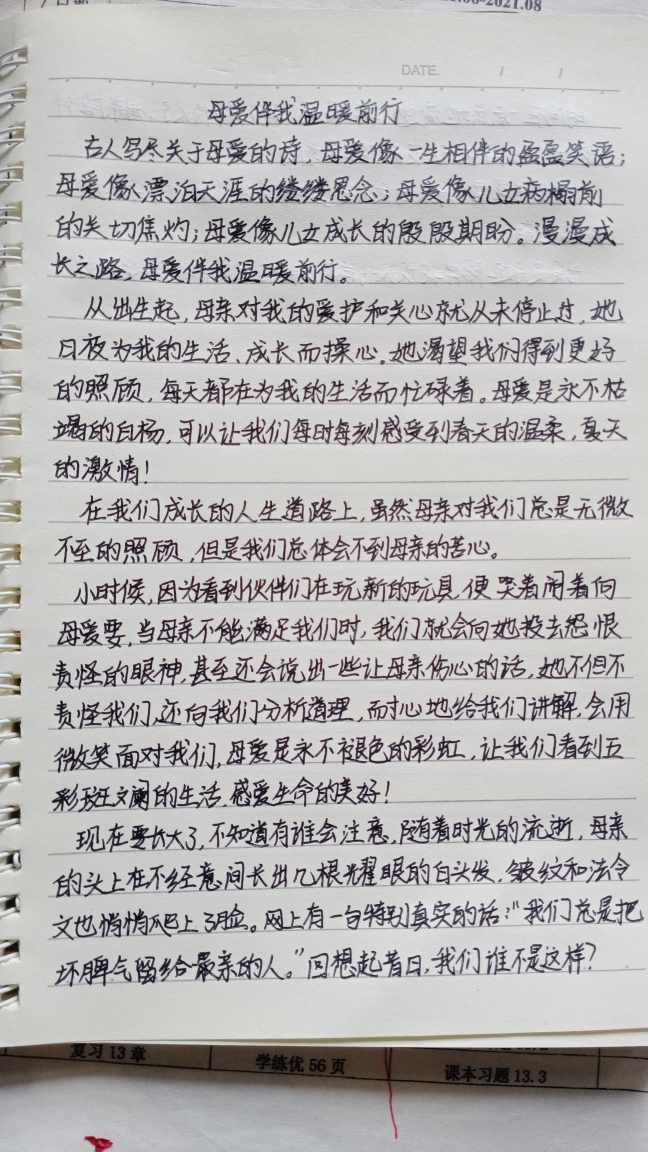 2021.08
DATE / /
母爱伴我温暖前行
古人写尽关于母爱的诗,母爱像一生相伴的盈盈笑语;
母爱像漂泊天涯的缕缕思念;母爱像儿女病榻前
的关切焦灼;母爱像儿女成长的殷殷期盼。漫漫成
长之路,母爱伴我温暖前行。
从出生起,母亲对我的爱护和关心就从未停止过,她
日夜为我的生活、成长而操心。她渴望我们得到更好
的照顾,每天都在为我的生活而忙碌着。母爱是永不枯
竭的白杨,可以让我们每时每刻感受到春天的温柔,夏天
的激情!
在我们成长的人生道路上,虽然母亲对我们总是无微
不至的照顾,但是我们总体会不到母亲的苦心。
小时候,因为看到伙伴们在玩新的玩具,便哭着闹着向
母爱要,当母亲不能满足我们时,我们就会向她投去怨恨
责怪的眼神,甚至还会说出一些让母亲伤心的话,她不但不
责怪我们,还向我们分析道理,耐心地给我们讲解,会用
微笑面对我们,母爱是永不褪色的彩虹,让我们看到五
彩斑斓的生活,感爱生命的美好!
现在长大了,不知道有谁会注意,随着时光的流逝,母亲
的头上在不经意间长出几根耀眼的白头发,皱纹和法令
文也悄悄爬上了脸。网上有一句特别真实的话:"我们总是把
坏脾气留给最亲的人。"回想起昔日,我们谁不是这样?
复习13章
学练优56页
课本习题13.3